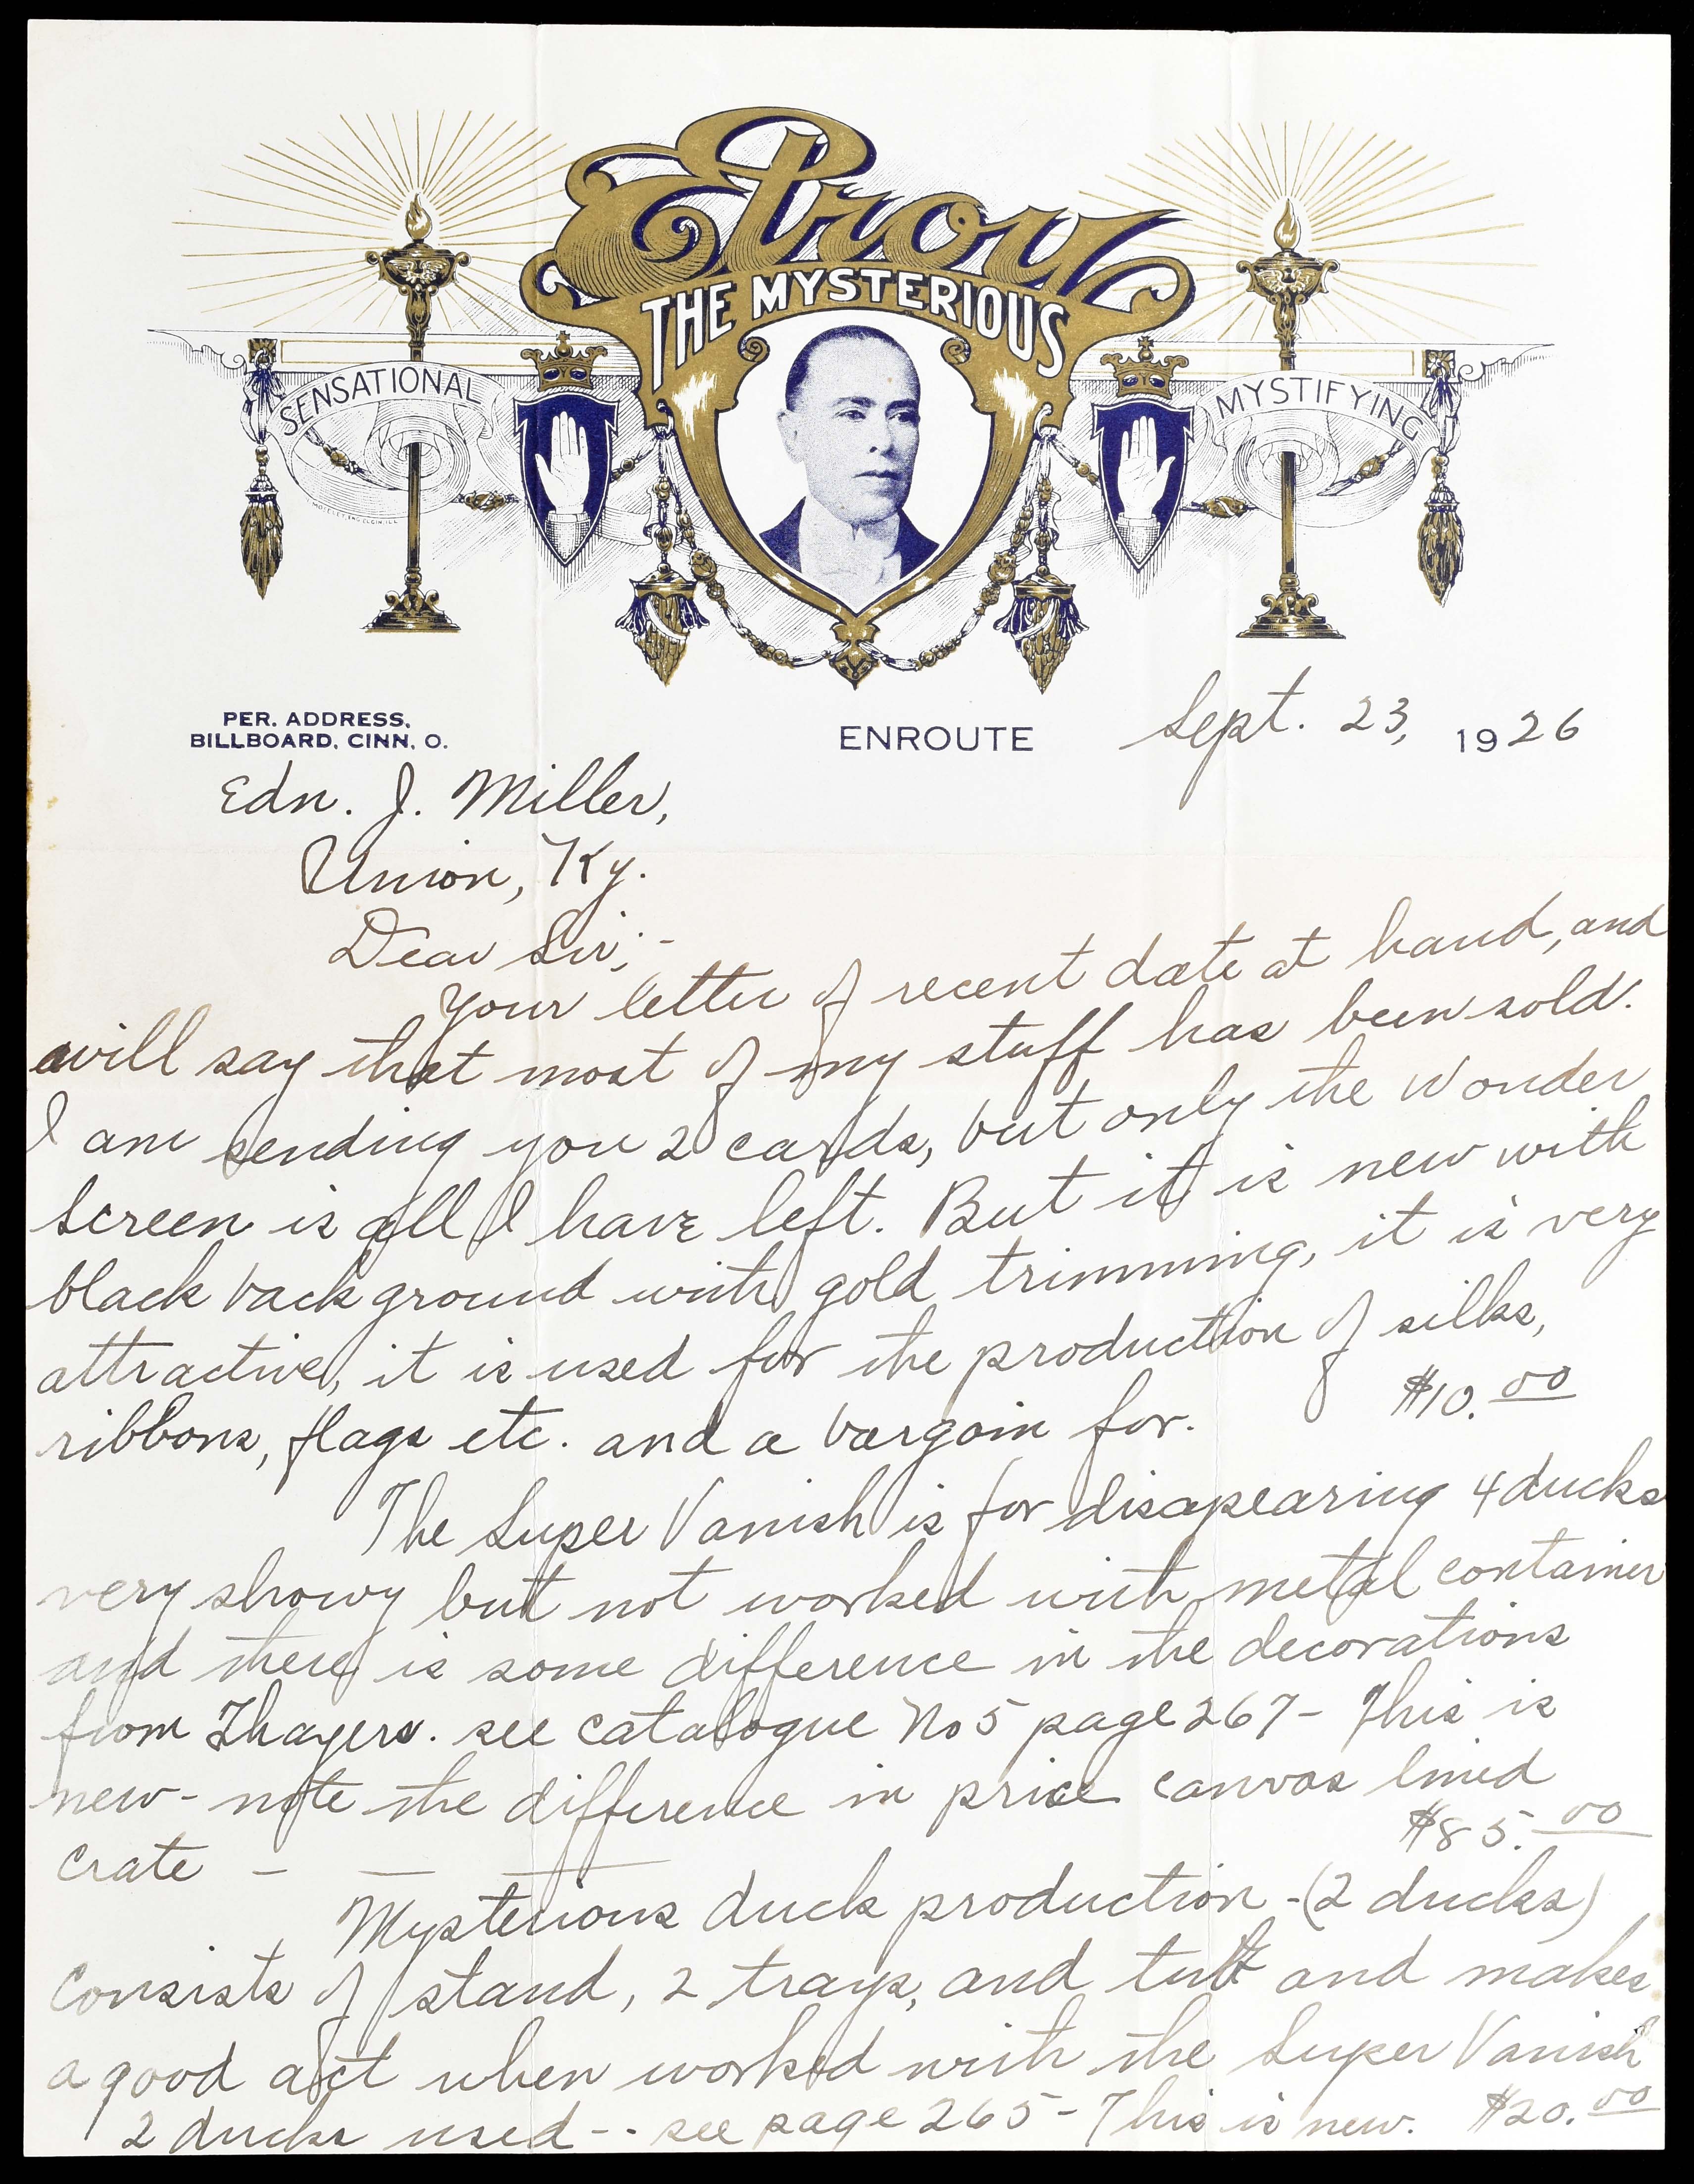 Elroy
THE MYSTERIOUS
SENSATIONAL
MYSTIFYING
MOSELEY, ENG. ELGIN, ILL.
PER. ADDRESS,
BILLBOARD, CINN, O.
ENROUTE Sept. 23, 1926
Edn. J. Miller,
Union, Ky.
Dear Sir;-
Your letter of recent date at hand, and
will say that most of my stuff has been sold.
I am sending you 2 cards, but only the Wonder
Screen is all I have left. But it is new with
black back ground with gold trimming, it is very
attractive, it is used for the production of silks,
ribbons, flags etc. and a bargain for. $10.00
The Super Vanish is for disapearing 4 ducks
very showy but not worked with metal container
and there is some difference in the decorations
from Thayers. see catalogue No 5 page 267 - This is
new - note the difference in price canvas lined
crate - — — $85.00
Mysterious duck production - (2 ducks)
Consists of stand, 2 trays, and tub and makes
a good act when worked with the Super Vanish
2 ducks used - - see page 265 - This is new. $20.00